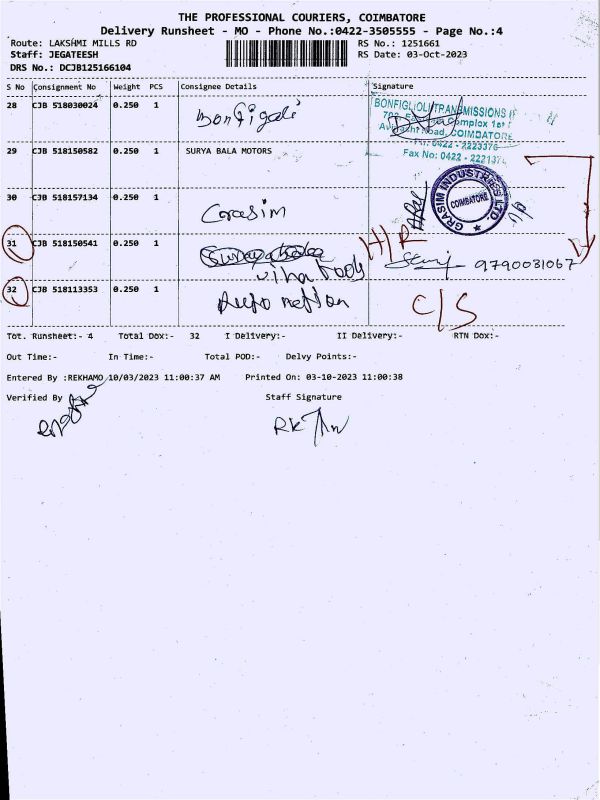 THE PROFESSIONAL COURIERS, COIMBATORE
Delivery Runsheet - MO - Phone No.:0422-3505555 - Page No.:4
Route: LAKSHMI MILLS RD RS No.: 1251661
Staff: JEGATEESH RS Date: 03-Oct-2023
DRS No.: DCJB125166104
S No Consignment No Weight PCS Consignee Details Signature
28 CJB 518030024 0.250 1 Bonfigali
BONFIGLIOLI TRANSMISSIONS
Complex 1st
Avinashi Road, COIMBATORE
Ph: 0422 - 2223376
Fax No: 0422 - 222137
29 CJB 518150582 0.250 1 SURYA BALA MOTORS
30 CJB 518157134 0.250 1 Grasim
GRASIM INDUSTRIES LTD.
COIMBATORE
31 CJB 518150541 0.250 1 H/R
9790031067
32 CJB 518113353 0.250 1 C/S
Tot. Runsheet:- 4 Total Dox:- 32 I Delivery:- II Delivery:- RTN Dox:-
Out Time:- In Time:- Total POD:- Delvy Points:-
Entered By :REKHAMO 10/03/2023 11:00:37 AM Printed On: 03-10-2023 11:00:38
Verified By Staff Signature